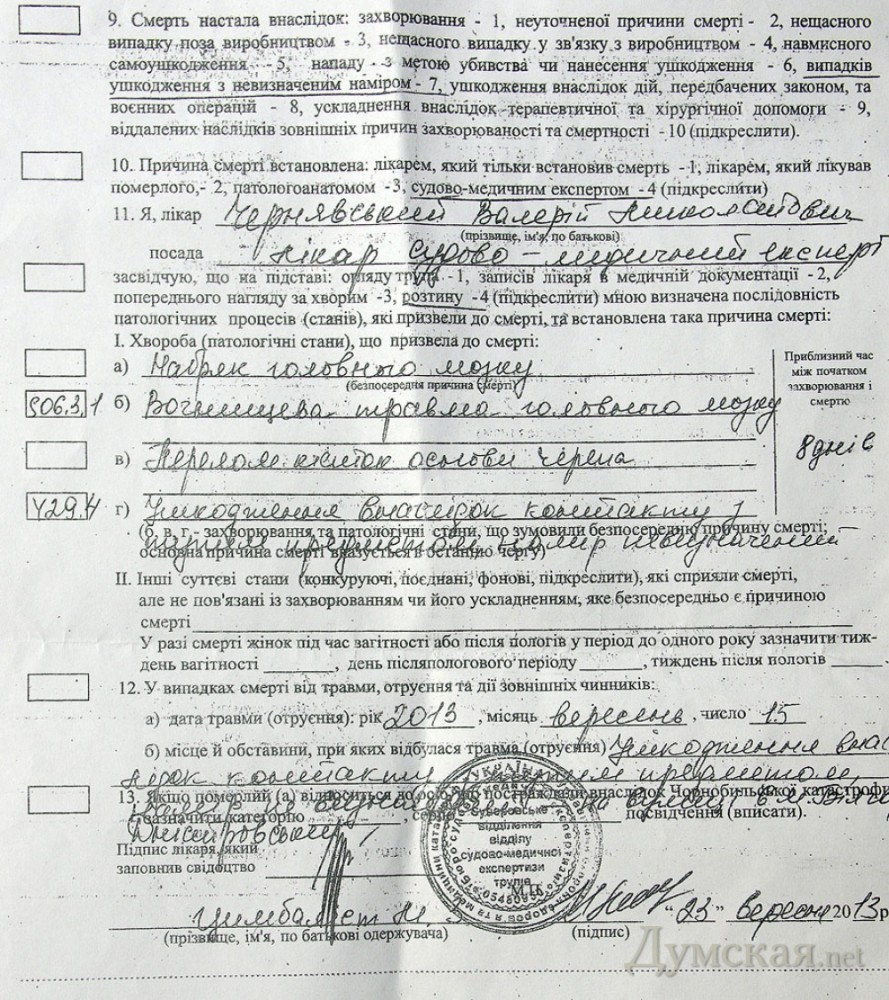 9. Смерть настала внаслідок: захворювання - 1, неуточненої причини смерті - 2, нещасного
випадку поза виробництвом - 3, нещасного випадку у зв'язку з виробництвом - 4, навмисного
самоушкодження - 5, нападу - з метою убивства чи нанесення ушкодження - 6, випадків
ушкодження з невизначеним наміром - 7, ушкодження внаслідок дій, передбачених законом, та
воєнних операцій - 8, ускладнення внаслідок терапевтичної та хірургічної допомоги - 9,
віддалених наслідків зовнішніх причин захворюваності та смертності - 10 (підкреслити).
10. Причина смерті встановлена: лікарем, який тільки встановив смерть - 1, лікарем, який лікував
померлого, - 2, патологоанатомом - 3, судово-медичним експертом - 4 (підкреслити)
11. Я, лікар Чернявський Валерій Николайович
(прізвище, ім'я, по батькові)
посада лікар судово-медичний експерт
засвідчую, що на підставі: огляду трупа - 1, записів лікаря в медичній документації - 2,
попереднього нагляду за хворим - 3, розтину - 4 (підкреслити) мною визначена послідовність
патологічних процесів (станів), які призвели до смерті, та встановлена така причина смерті:
I. Хвороба (патологічні стани), що призвела до смерті:
Приблизний час
між початком
захворювання і
смертю
а) Набряк головного мозку
(безпосередня причина смерті)
S06.3,1 б) Вогнищева травма головного мозку
8 днів
в) Перелом кісток основи черепа
Y29.4 г) Ушкодження внаслідок контакту з
(б, в, г - захворювання та патологічні стани, що зумовили безпосередню причину смерті;
тупим предметом намір невизначений
основна причина смерті вказується в останню чергу)
II. Інші суттєві стани (конкуруючі, поєднані, фонові, підкреслити), які сприяли смерті,
але не пов'язані із захворюванням чи його ускладненням, яке безпосередньо є причиною
смерті
У разі смерті жінок під час вагітності або після пологів у період до одного року зазначити тиж-
день вагітності , день післяпологового періоду , тиждень після пологів .
12. У випадках смерті від травми, отруєння та дії зовнішніх чинників:
а) дата травми (отруєння): рік 2013 , місяць вересень , число 15
б) місце й обставини, при яких відбулася травма (отруєння) Ушкодження внас
лідок контакту з тупим предметом,
13. Якщо померлий (а) відноситься до осіб, що постраждали внаслідок Чорнобильської катастрофи
зазначити категорію , серію посвідчення (вписати).
Дністровський
Підпис лікаря, який
заповнив свідоцтво
Суворовське
відділення
відділу
судово-медичної
експертизи
трупів
05480850
М.П.
Цимбалист "23" вересня 2013 р
(прізвище, ім'я, по батькові одержувача) (підпис)
Думская.net